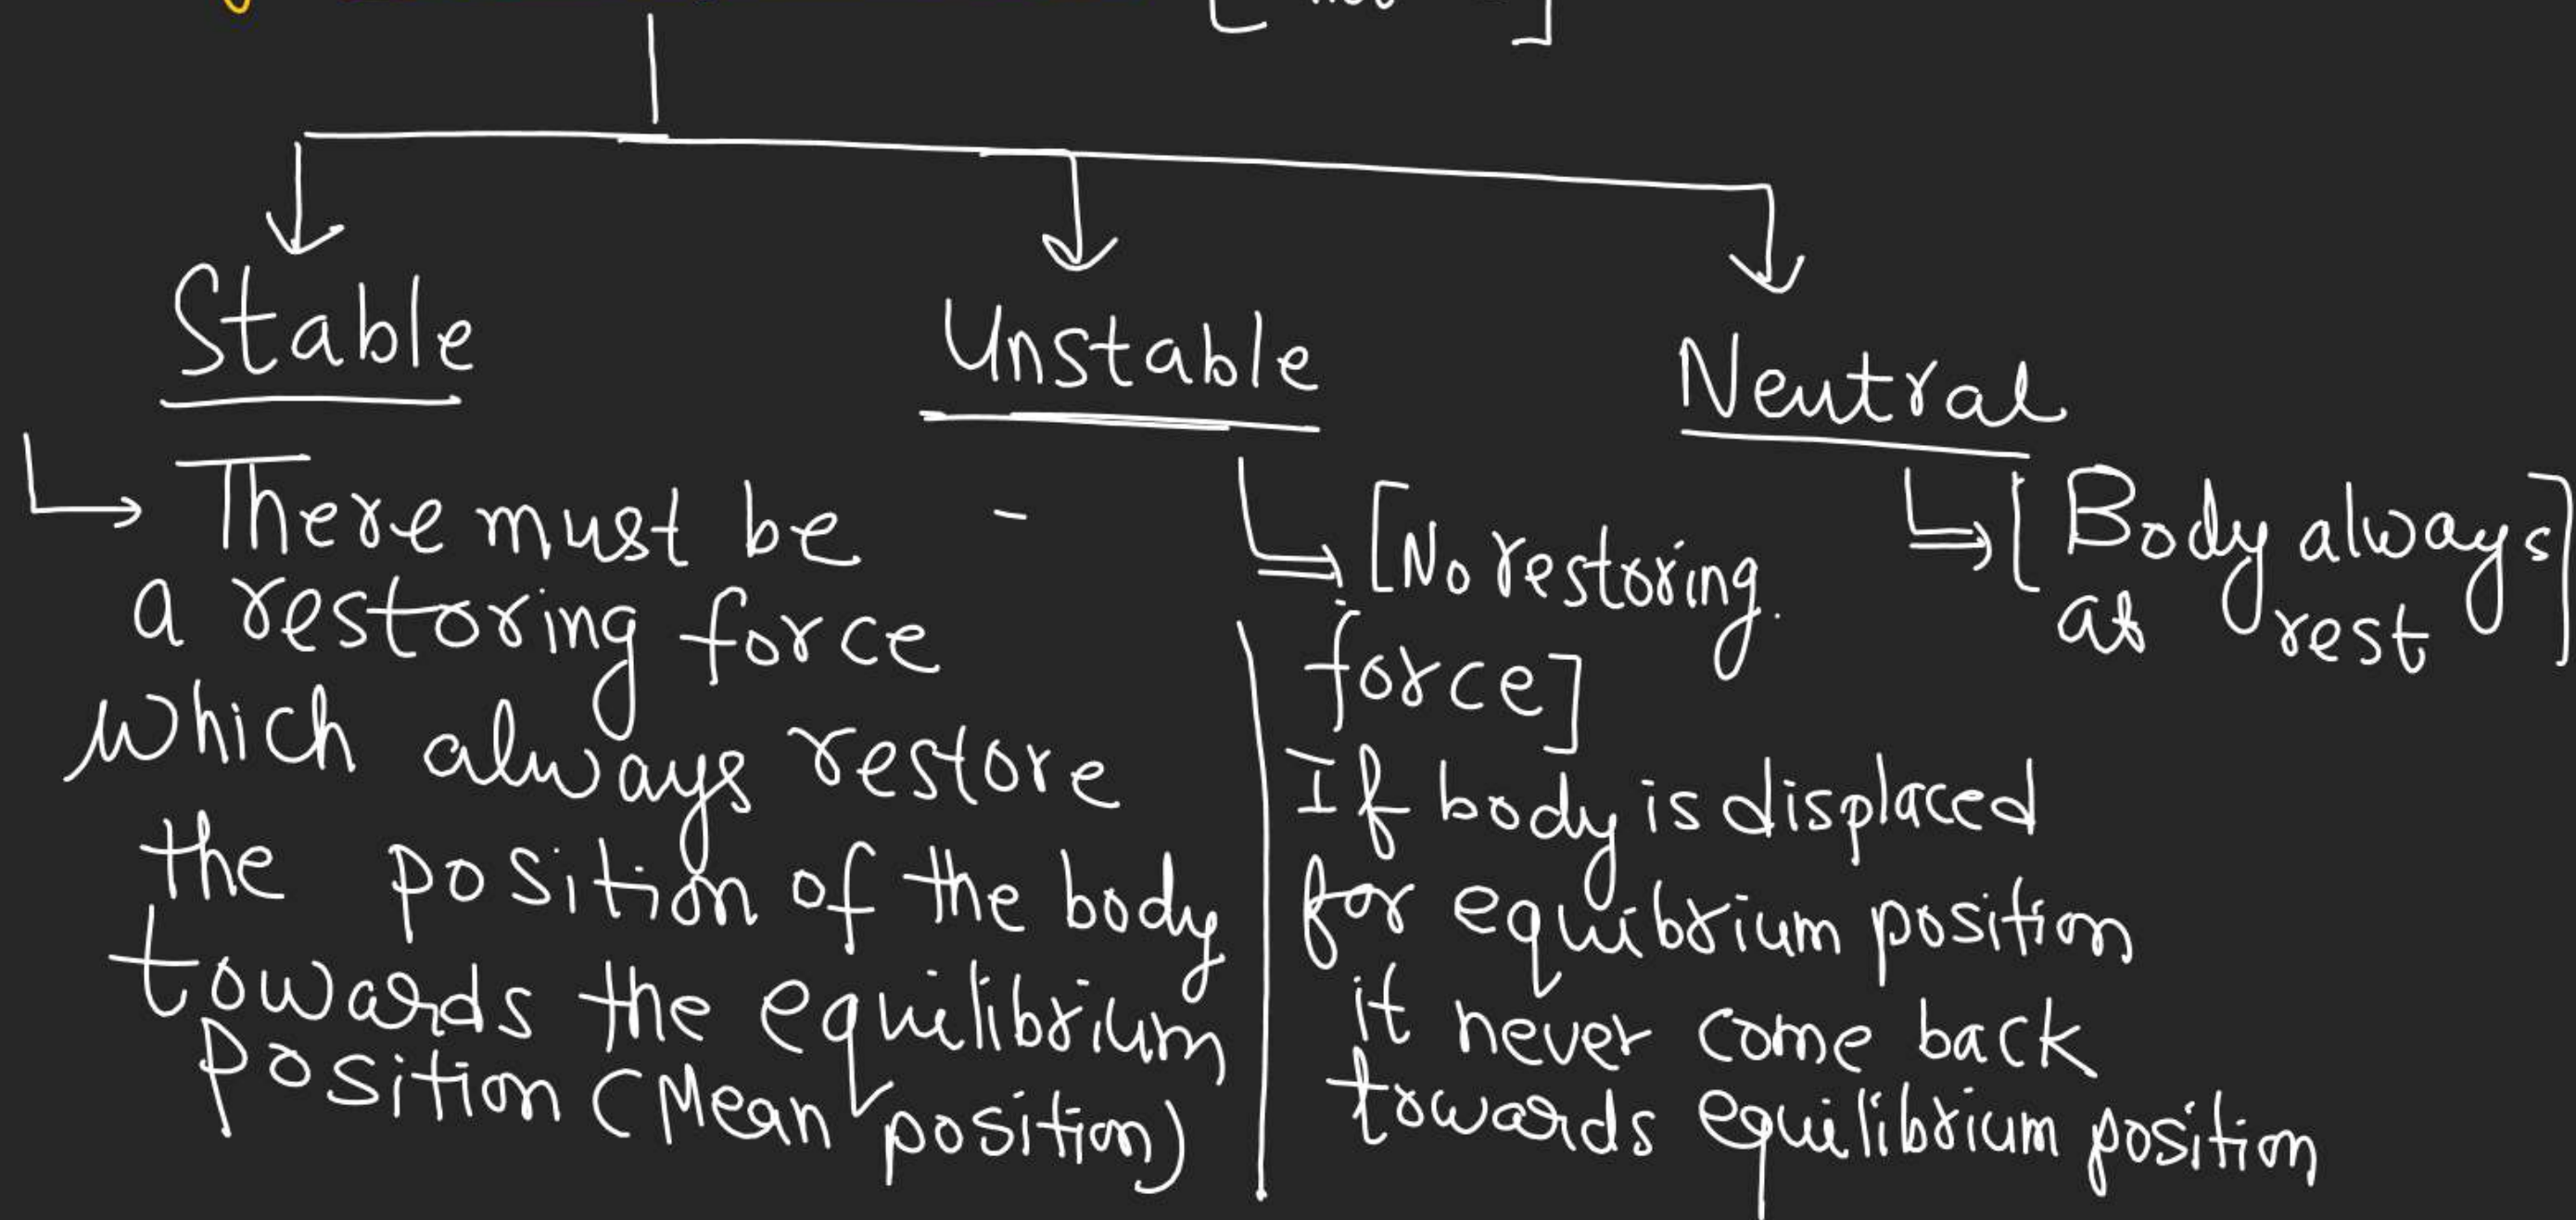 Stable
Unstable
Neutral
There must be
a restoring force
which always restore
the position of the body
towards the equilibrium
position (Mean position)
[No restoring
force]
If body is displaced
for equibrium position
it never come back
towards equilibrium position
[Body always]
at rest